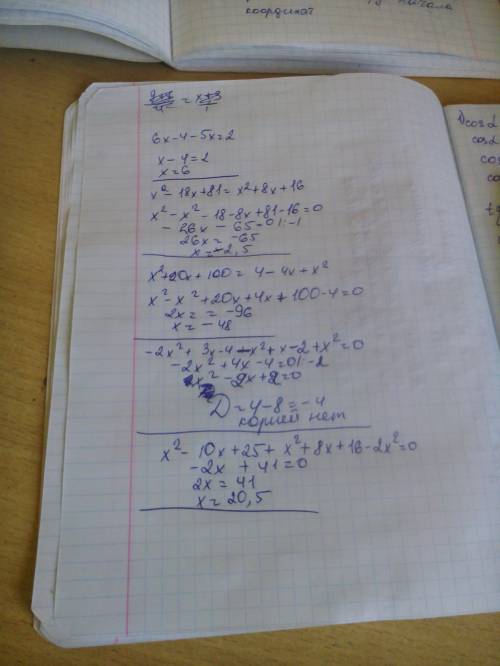 начала
координат
6x-4-5x=2
x-4=2
x=6
x²-18x+81=x²+8x+16
x²-x²-18-8x+81-16=0
-26x-65=0|:-1
26x=-65
x=-2,5
x²+20x+100=4-4x+x²
x²-x²+20x+4x+100-4=0
2x==-96
x=-48
-2x²+3x-4-x²+x-2+x²=0
-2x²+4x-4=0|:-2
x²-2x+2=0
D=4-8=-4
корней нет
x²-10x+25+x²+8x+16-2x²=0
-2x+41=0
2x=41
x=20,5
cos α
cos
cos